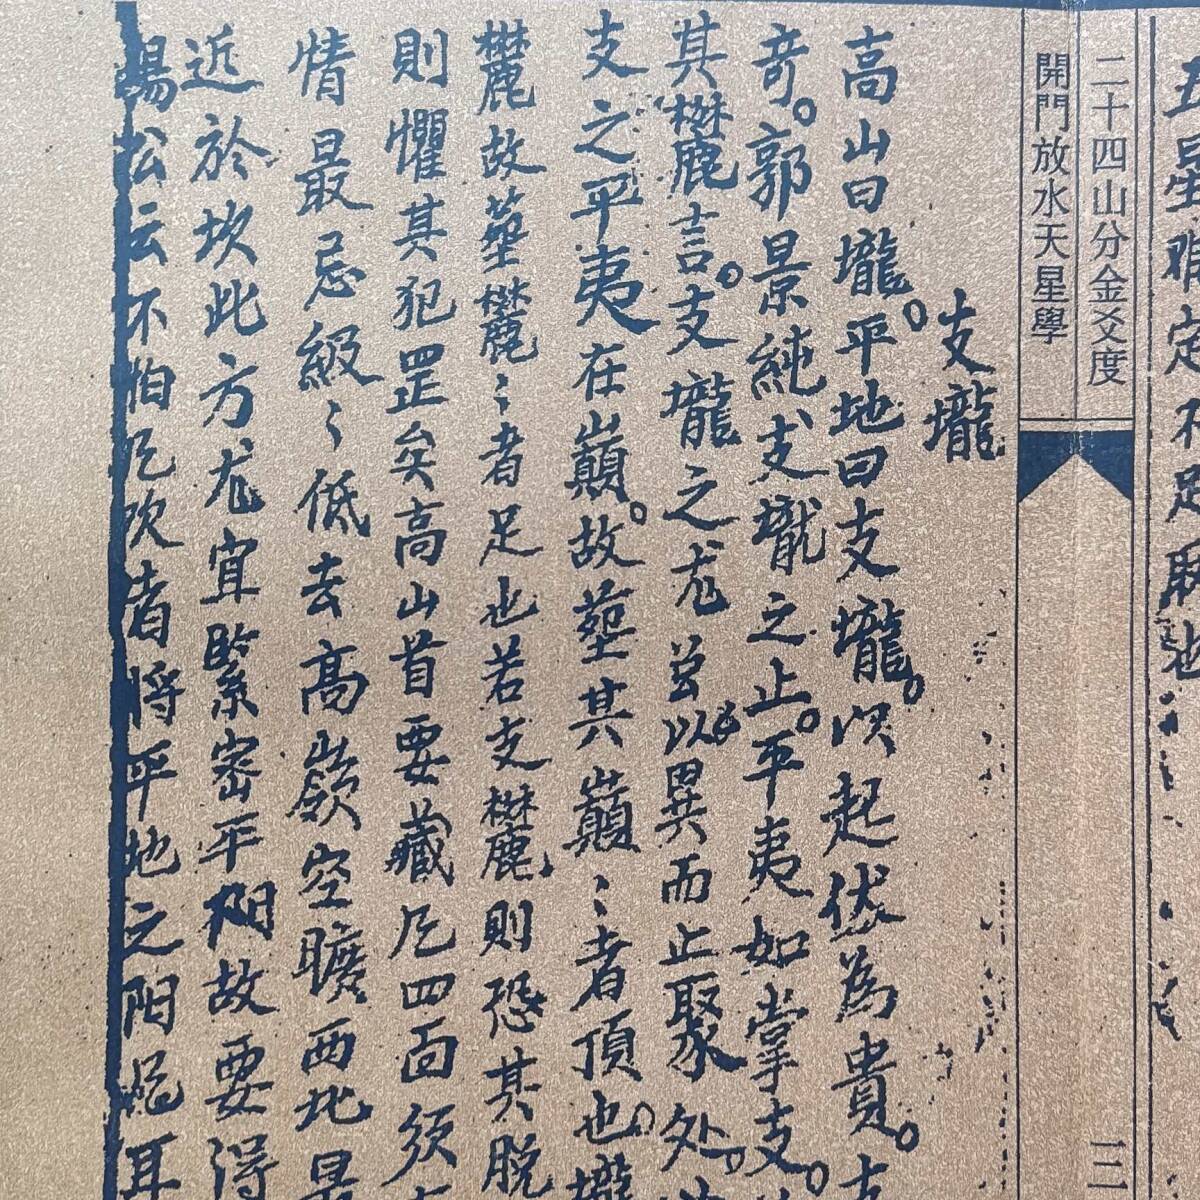 五星
定
足
二十四山分金爻度
開門放水天星學
支壠
高山曰壠。平地曰支壠。以起伏為貴。支
奇。郭景純支壠之止。平夷如掌支。
其麓言。支壠之尤并以異而止聚处。
支之平夷在巔。故塟其巔〻者頂也。壠
麓故塟麓〻者足也若支麓則恐其脫
則懼其犯罡矣高山首要藏凡四面須
情最忌級〻低去高嶺空曠西北最
近於坎此方尤宜緊密平陽故要得
楊松云不怕凡吹者將平地之陽耳